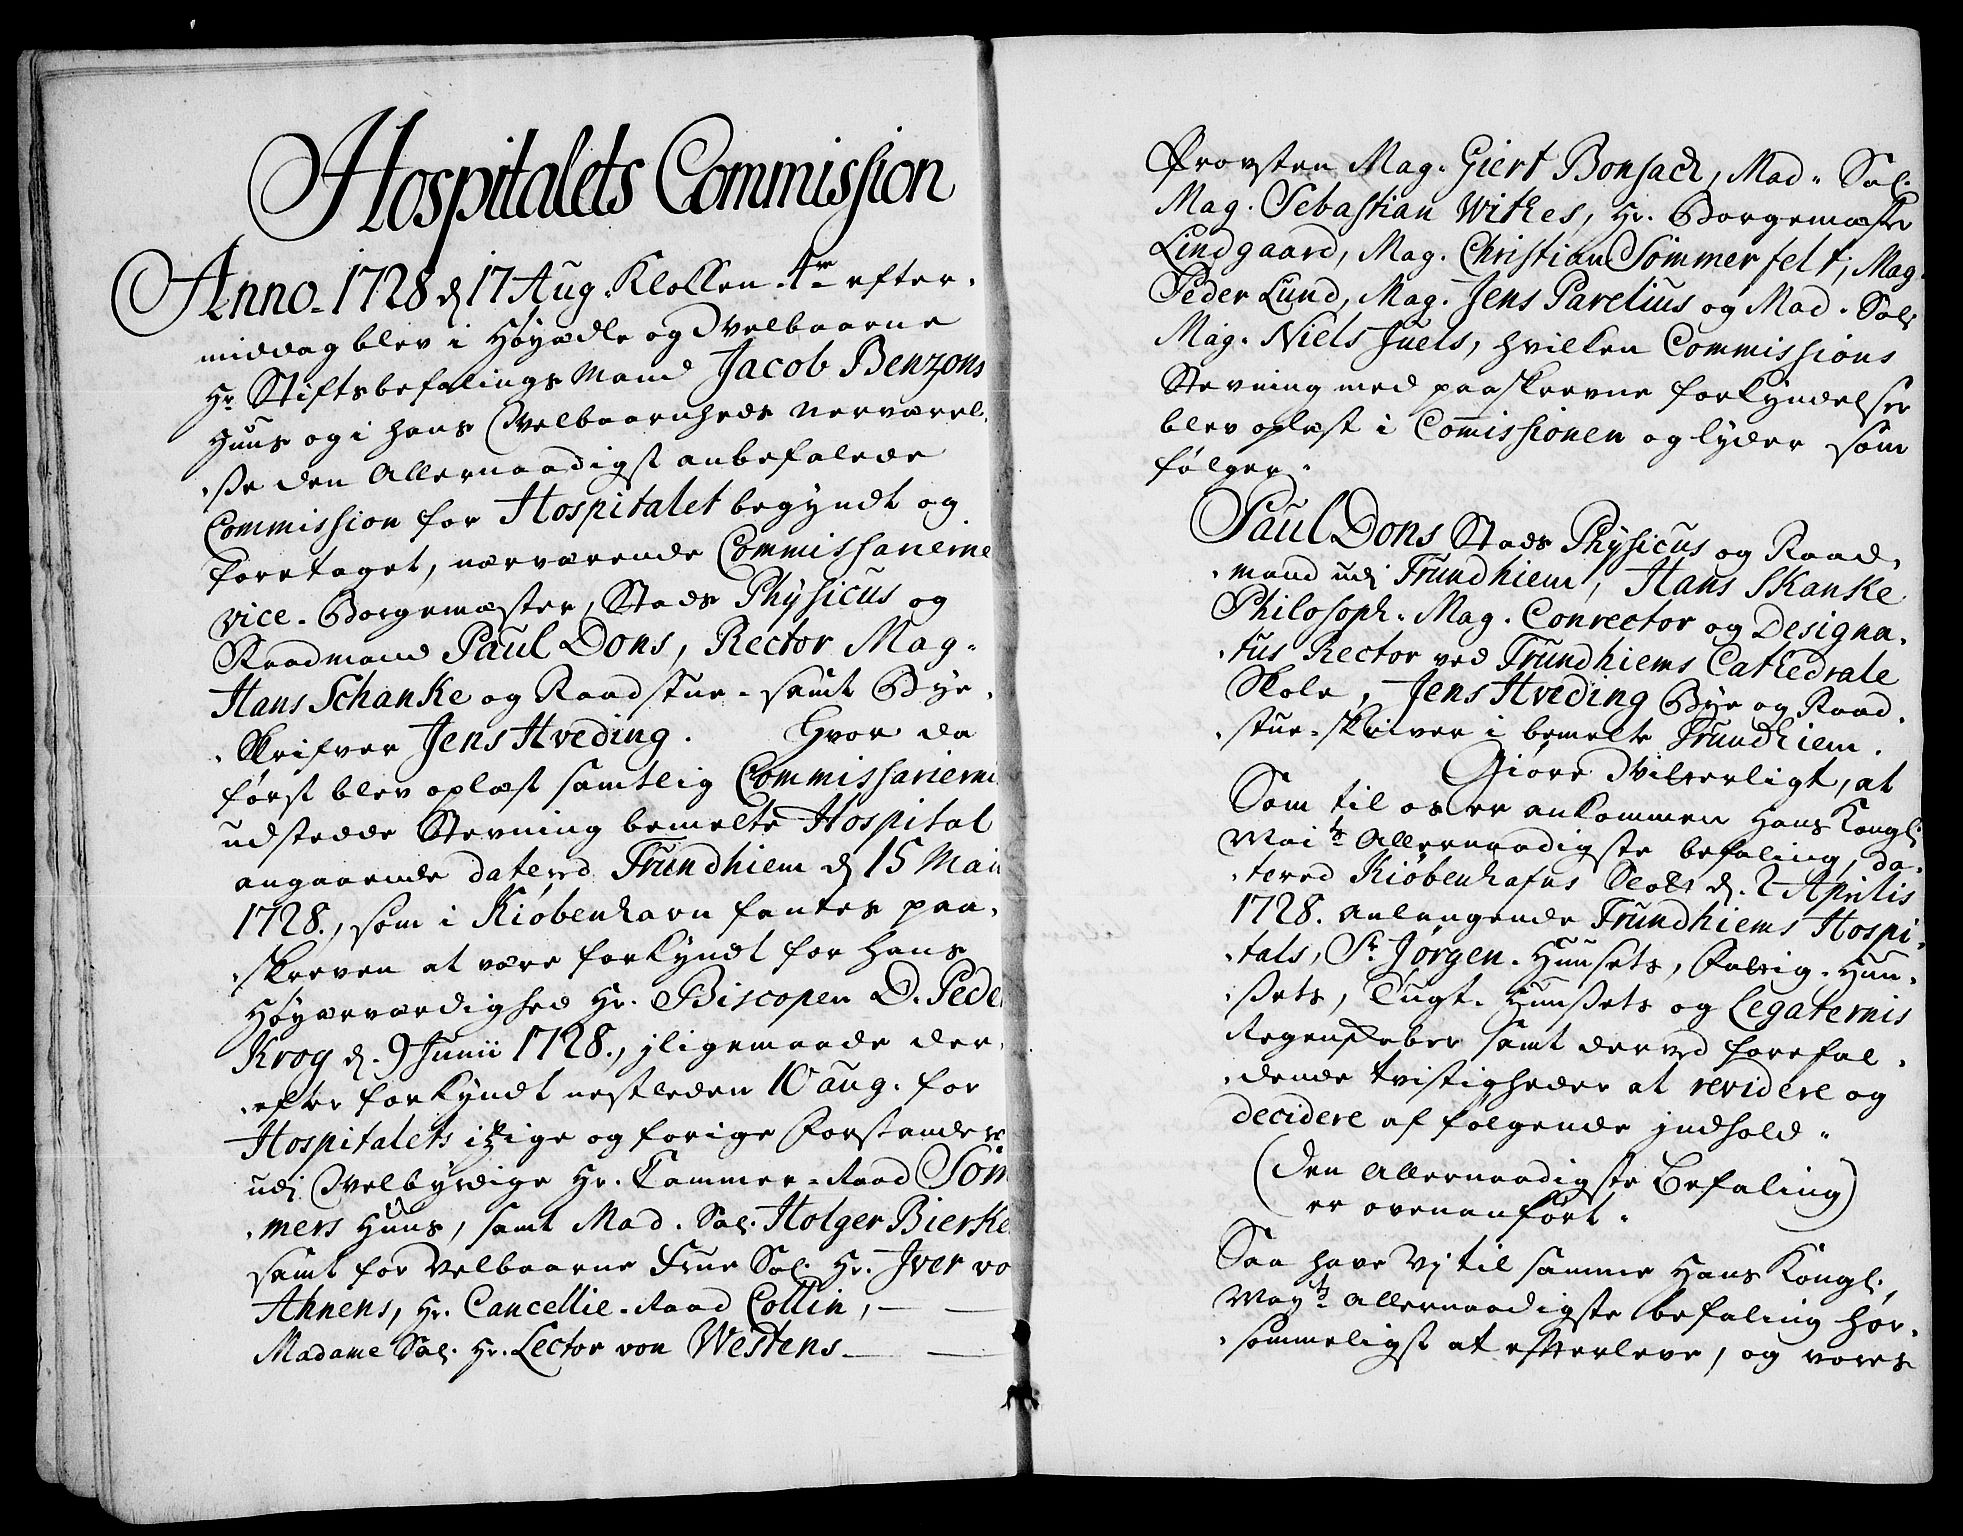 Hospitalets Commission
Anno. 1728 d 17 Aug. Klokken 4re efter-
middag blev i Høyædle og Velbaarne
Hr Stiftsbefalings Mand Jacob Benzons
Huus og i hans Velbaarnheds nerværel-
-se den Allernaadigst anbefalede
Commission for Hospitalet begyndt og
foretaget, nærværende Commissarierne
vice-Borgemæster, Stads Physicus og
Raadmand Paul Dons, Rector Mag-
Hans Schanke og Raadstue- samt Bye-
-Skrifver Jens Hveding. Hvor da
først blev oplæst samtlig Commissarierni
udstedde Stevning bemelte Hospital
angaaende datered Trundhiem d 15 Maii
1728., som i Kiøbenhavn fantes paa-
-skreven at være forkyndt for Hans
Høyærværdighed Hr. Biscopen D. Peder
Krog d. 9 Junii 1728., jligemaade der-
-efter forkyndt nestleden 10 aug. for
Hospitalets itzige og forige Forstandere
udj Velbyrdige Hr. Cammer-Raad Söm
-mers Huus, samt Mad. Sal. Holger Bierke
samt for Velbaarne Frue Sal. Hr. Jver vo
Ahnens, Hr. Cancellie-Raad Collin,
Madame Sal. Hr. Lector von Westens
Provsten Mag. Giert Bonsach, Mad. Sal.
Mag. Sebastian Withes, Hr. Borgemæster
Lindgaard, Mag. Christian Sommerfelt, Mag.
Peder Lund, Mag. Jens Parelius og Mad. Sal.
Mag. Niels Juels, hvilken Commissions
Stevning med paaskrevne forkyndelser
blev oplæst i Comissionen og lyder som
følger.
Paul Dons Stads Physicus og Raad-
-mand udj Trundhiem, Hans Skanke
Philosoph. Mag. Conrector og Designa-
-tus Rector ved Trundhiems Cathedrale
Skole, Jens Hveding Bye og Raad-
-stue-skriver i bemelte Trundhiem.
Giöre Vitterligt, at
Som til os er ankommen Hans Kongl:
Maits Allernaadigste befaling, da-
-tered Kiöbenhafns Slott d. 2 Aprilis
1728. anlangende Trundhiems Hospi-
-tals, St Jörgen-Huusets, Fattig-Huu-
-sets, Tugt-Huusets og Legaternis
Regenskeber samt derved forefal-
-dende tvistigheder at revidere og
decidere af følgende jndhold.
(den Allernaadigste Befaling)
er ovenanfört.
Saa have Vj til samme Hans Kongl:
Mayts Allernaadigste befaling hör-
-sommeligst at efterleve, og vores